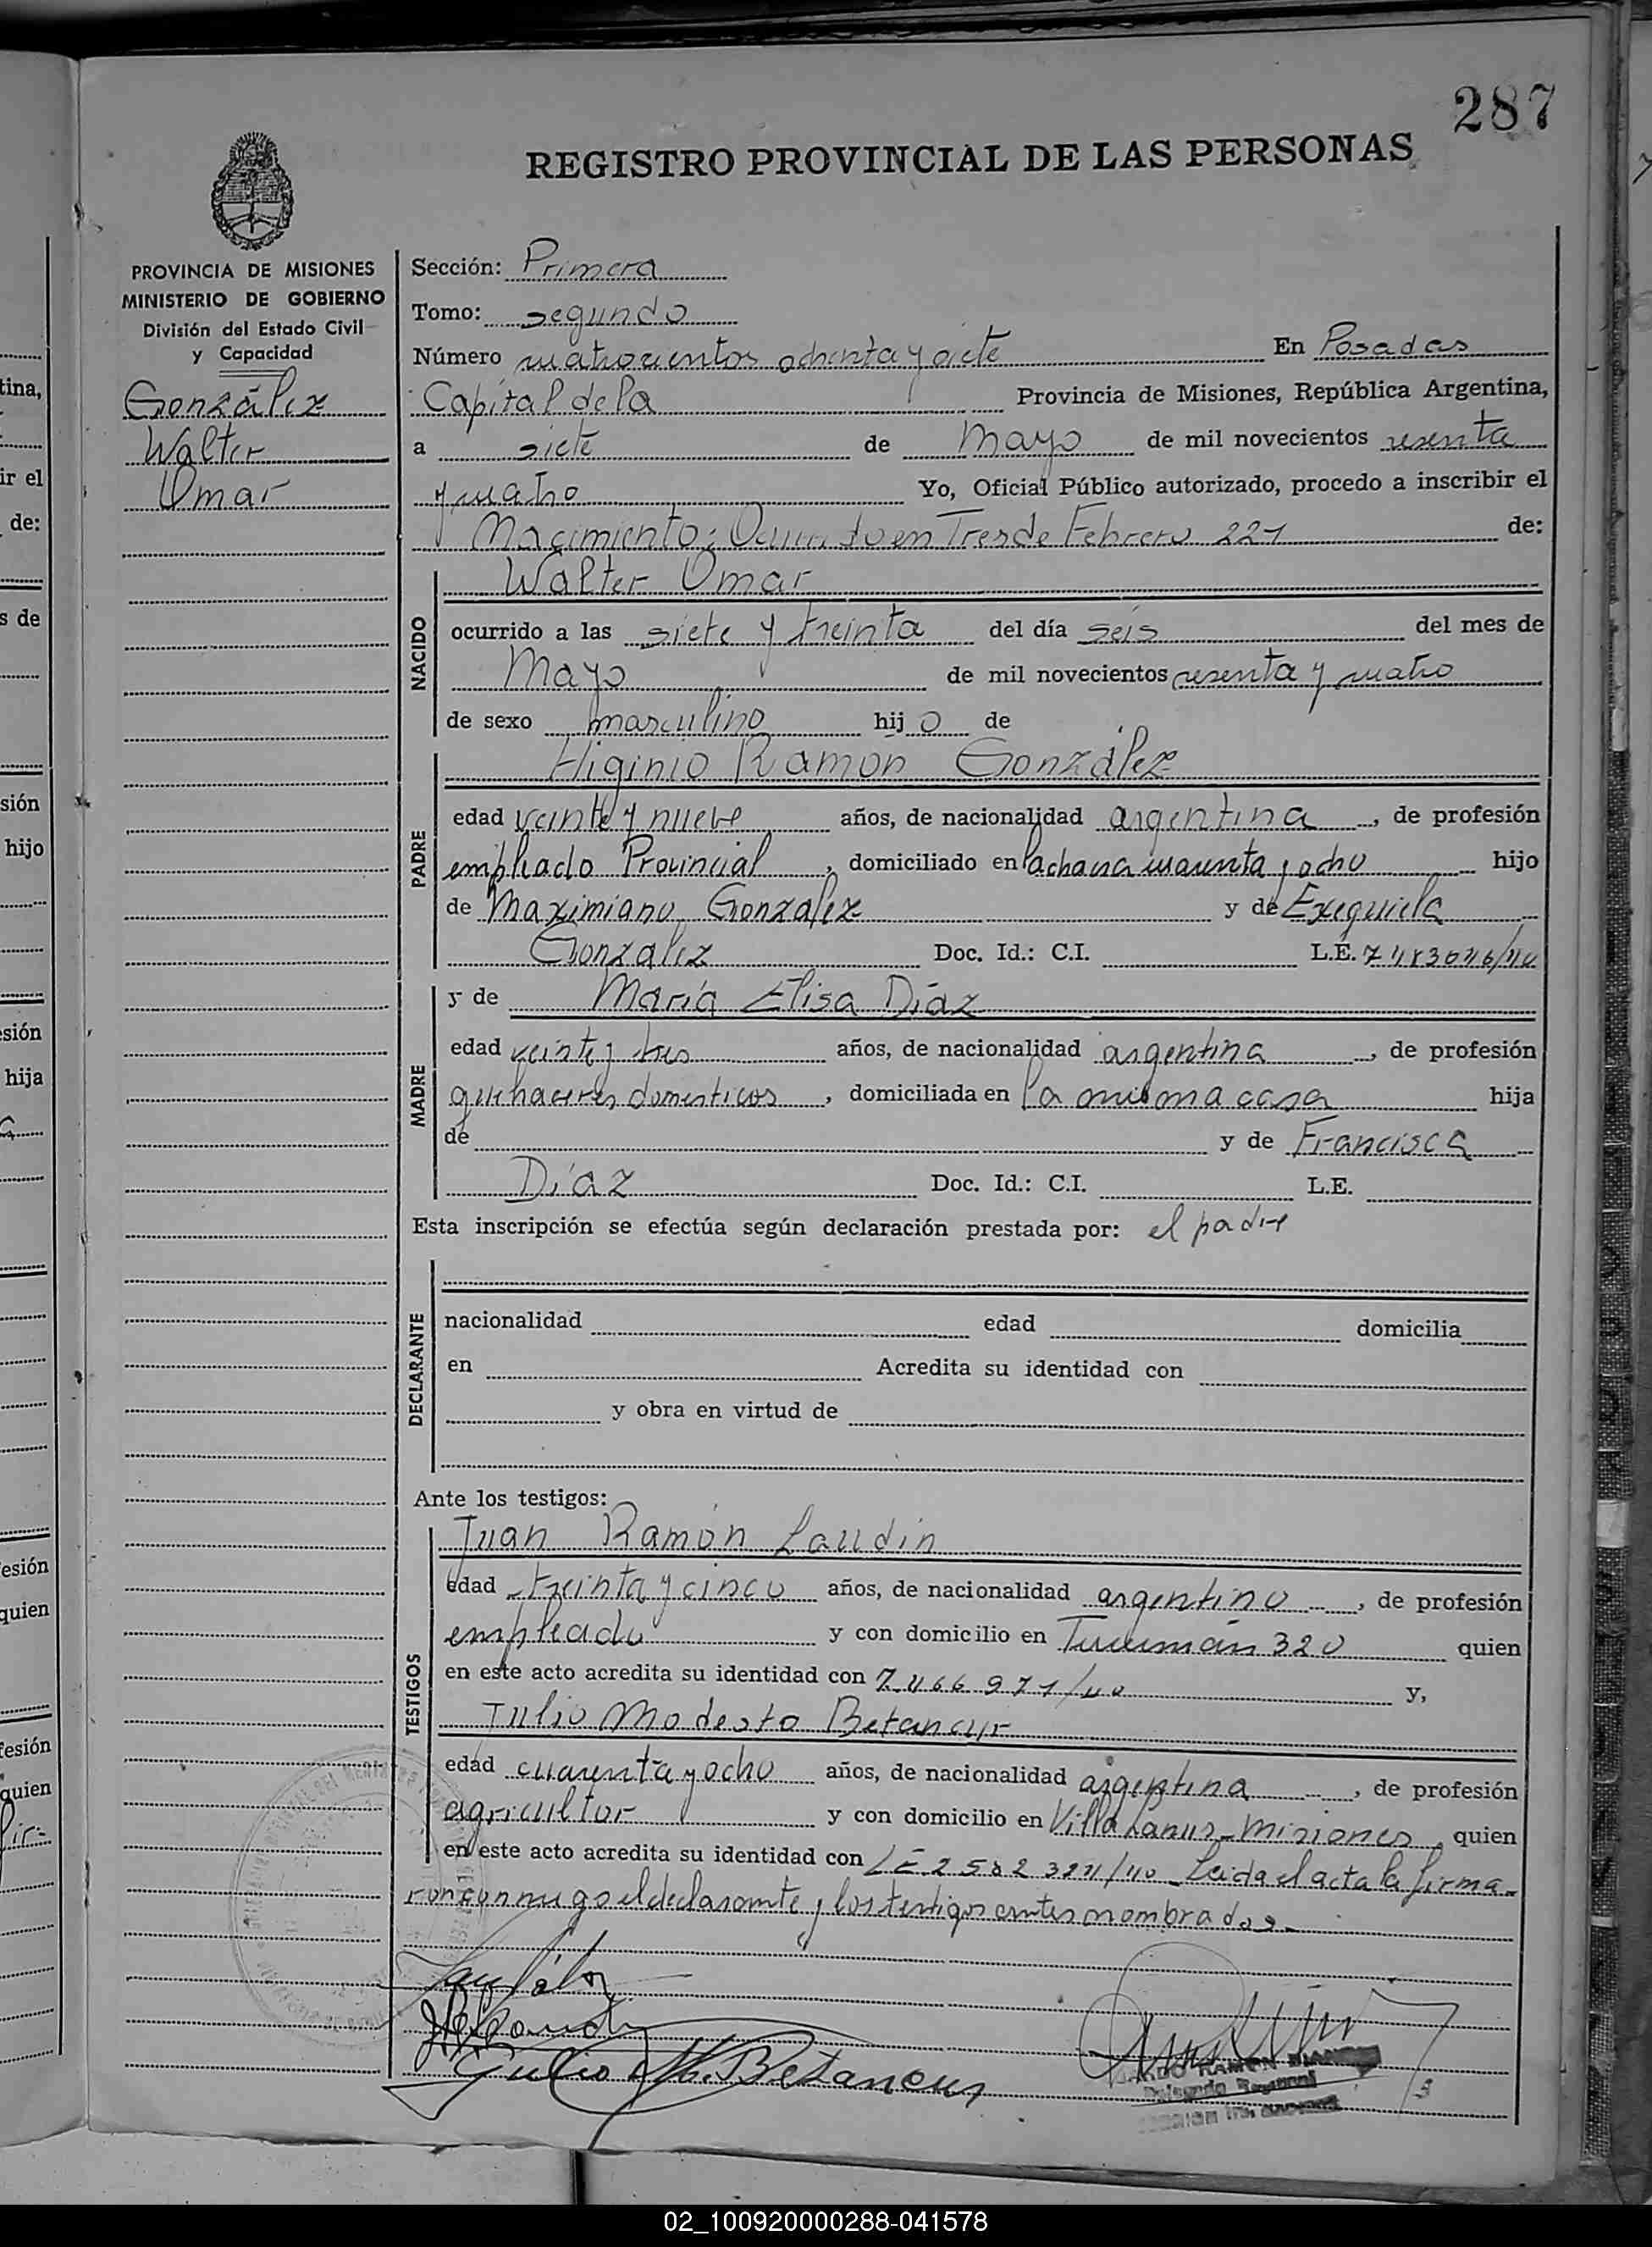 287
REGISTRO PROVINCIAL DE LAS PERSONAS
PROVINCIA DE MISIONES
MINISTERIO DE GOBIERNO
División del Estado Civil
y Capacidad
González
Walter
Omar
Sección: Primera
Tomo: segundo
Número cuatrocientos ochenta y siete En Posadas
Capital de la Provincia de Misiones, República Argentina,
a siete de Mayo de mil novecientos sesenta
y cuatro Yo, Oficial Público autorizado, procedo a inscribir el
Nacimiento: Ocurrido en Tres de Febrero 221 de:
NACIDO
Walter Omar
ocurrido a las siete y treinta del día seis del mes de
Mayo de mil novecientos sesenta y cuatro
de sexo masculino hijo de
PADRE
Higinio Ramón González
edad veinte y nueve años, de nacionalidad argentina, de profesión
empleado Provincial, domiciliado en chacra cuarenta y ocho hijo
de Maximiano González y de Exequiela
González Doc. Id.: C.I. L.E.
MADRE
y de María Elisa Díaz
edad veinte y tres años, de nacionalidad argentina, de profesión
quehaceres domesticos, domiciliada en la misma casa hija
de y de Francisca
Díaz Doc. Id.: C.I. L.E.
Esta inscripción se efectúa según declaración prestada por: el padre
DECLARANTE
nacionalidad edad domicilia
en Acredita su identidad con
y obra en virtud de
Ante los testigos:
TESTIGOS
Juan Ramón Laudin
edad treinta y cinco años, de nacionalidad argentino, de profesión
empleado y con domicilio en Tucumán 320 quien
en este acto acredita su identidad con 7.466.971/40 y,
Julio Modesto Betancur
edad cuarenta y ocho años, de nacionalidad argentina, de profesión
agricultor y con domicilio en Villa Lanus - Misiones, quien
en este acto acredita su identidad con LE Leida el acta la firma-
ron conmigo el declarante y los testigos antes nombrados.-
Julio M. Betancur
RAMON
Delegado Regional
02_100920000288-041578